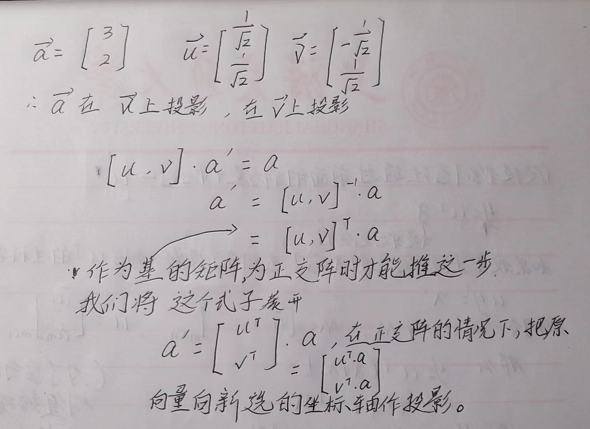 a⃗ = [3 2] u⃗ = [1/√2 1/√2] v⃗ = [-1/√2 1/√2]
∴ a⃗ 在 u⃗ 上投影，在 v⃗ 上投影
[u, v] · a' = a
a' = [u, v]⁻¹ · a
= [u, v]ᵀ · a
作为基的矩阵，为正交阵时才能推这一步.
我们将 这个式子展开
a' = [uᵀ vᵀ] · a，在正交阵的情况下，把原
= [uᵀ·a vᵀ·a]
向量向新选的坐标轴作投影。